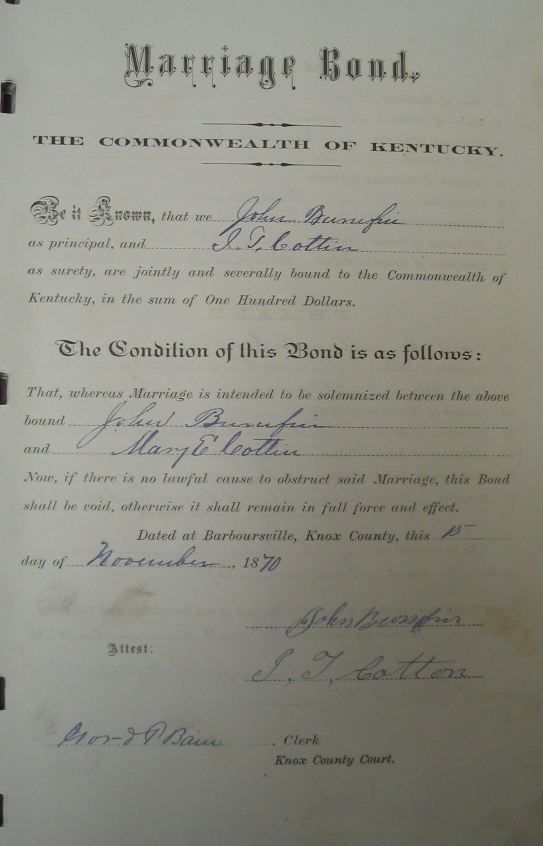 Marriage Bond,
THE COMMONWEALTH OF KENTUCKY.
Be it Known, that we John
as principal, and J. T. Cottin
as surety, are jointly and severally bound to the Commonwealth of
Kentucky, in the sum of One Hundred Dollars.
The Condition of this Bond is as follows:
That, whereas Marriage is intended to be solemnized between the above
bound John
and Mary E Cottin
Now, if there is no lawful cause to obstruct said Marriage, this Bond
shall be void, otherwise it shall remain in full force and effect.
Dated at Barboursville, Knox County, this 15
day of November, 1870
John
Attest:
J. T. Cotton
Clerk
Knox County Court.